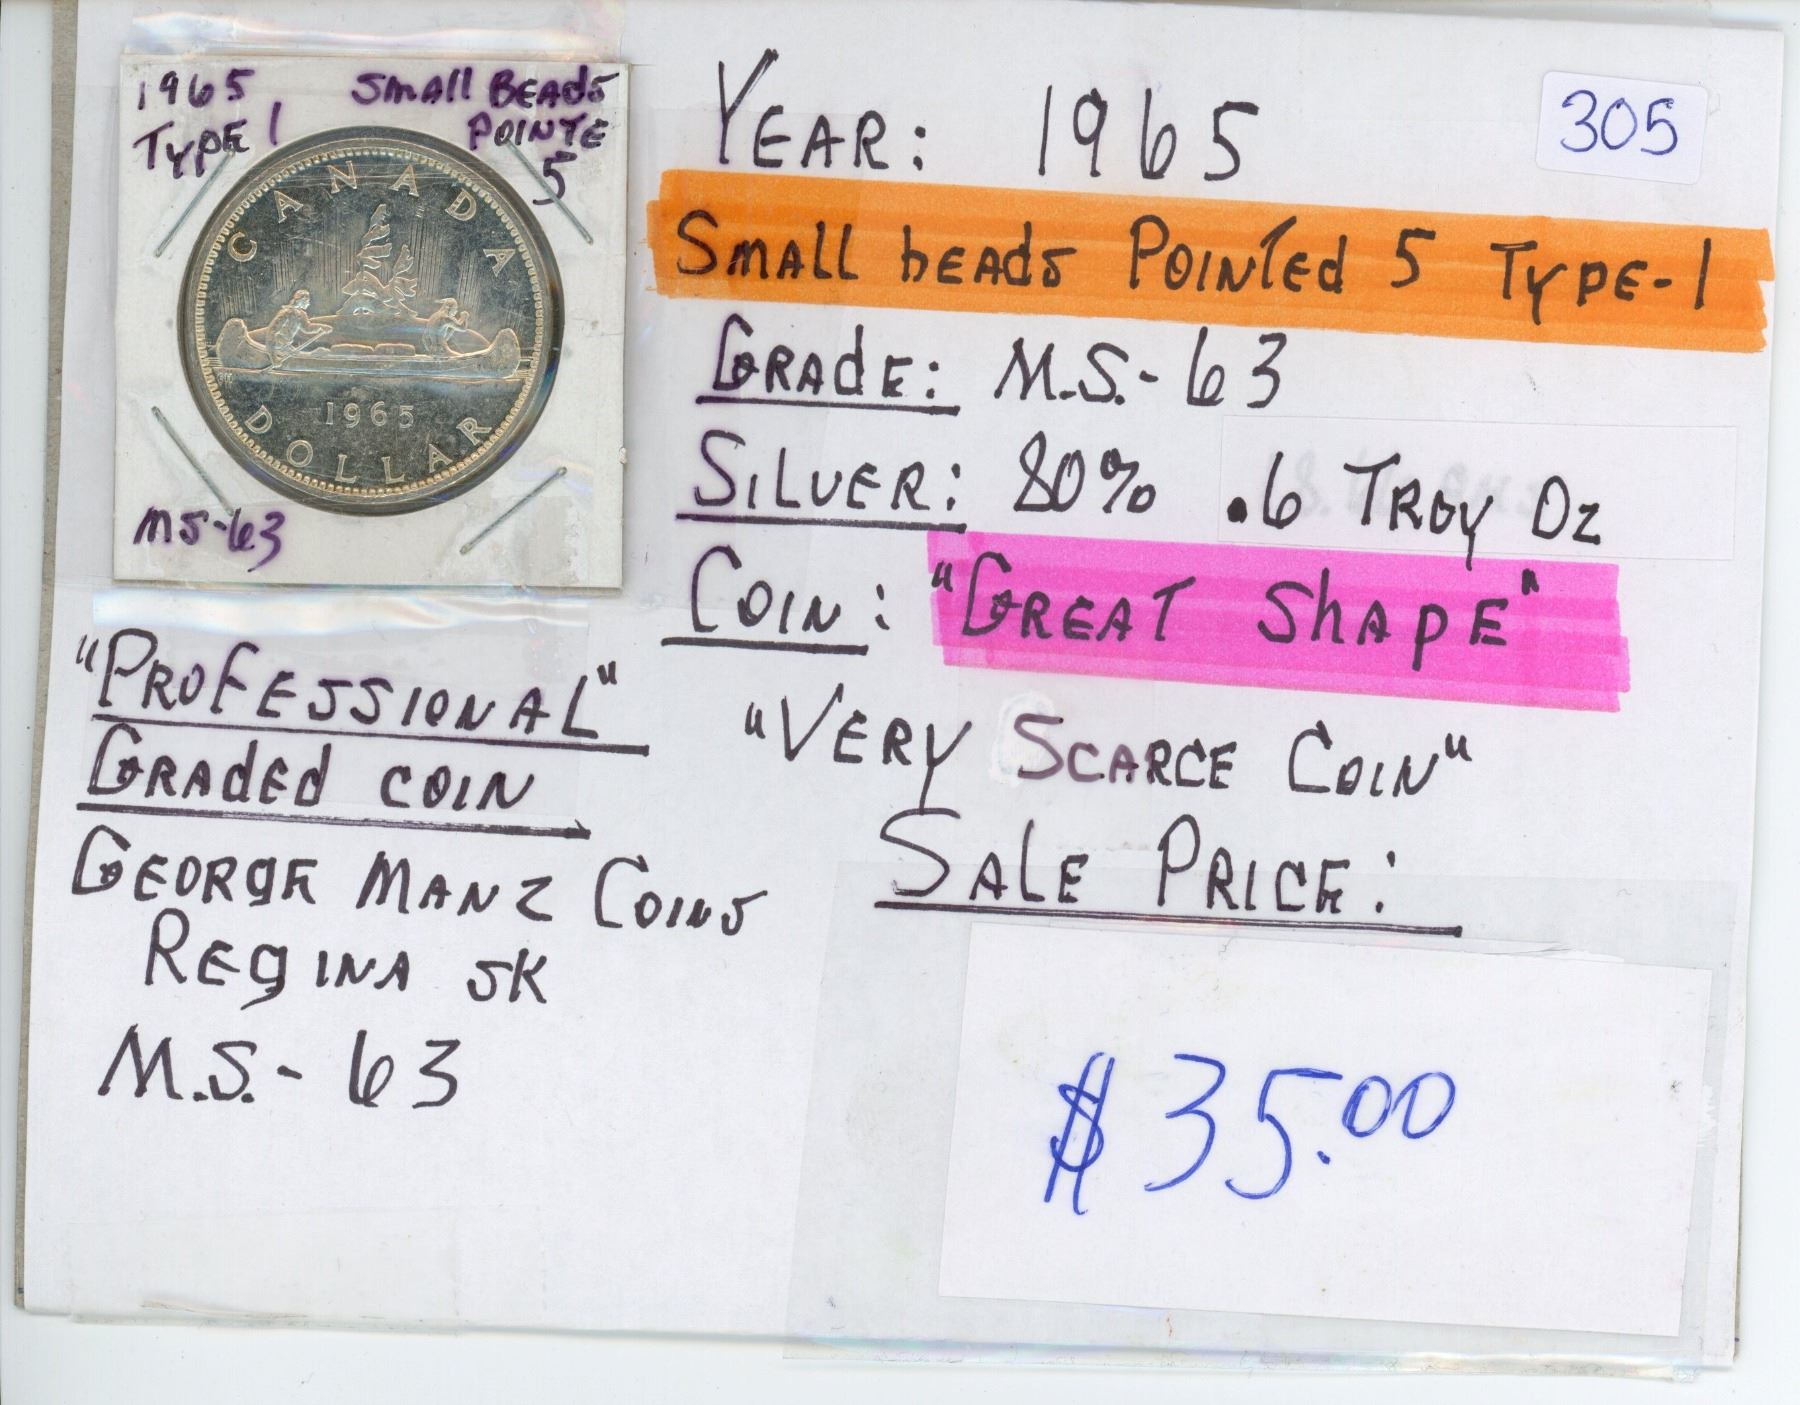 1965 Small Beads
Type 1 Pointe
5
CANADA
1965
DOLLAR
MS-63
Year: 1965
305
Small beads Pointed 5 Type-1
Grade: M.S.-63
Silver: 80% .6 Troy Oz
Coin: "Great Shape"
"Very Scarce Coin"
Sale Price:
$35.00
"Professional"
Graded coin
George Manz Coins
Regina SK
M.S.-63